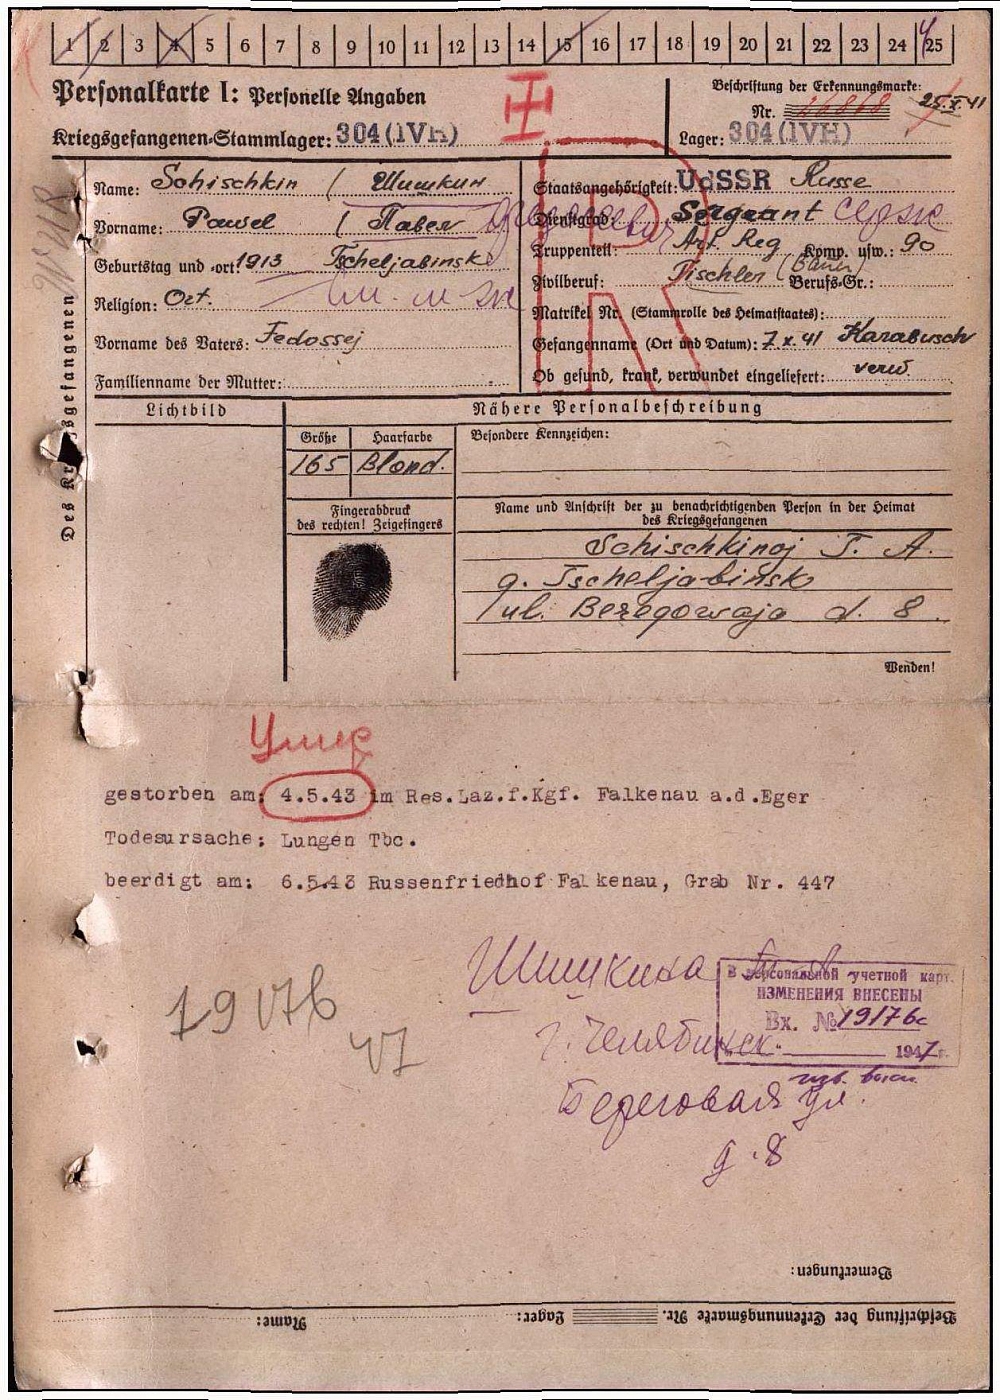 1 2 3 4 5 6 7 8 9 10 11 12 13 14 15 16 17 18 19 20 21 22 23 24 25
4
Personalkarte I: Personelle Angaben
Kriegsgefangenen-Stammlager: 304 (IVH)
Beschriftung der Erkennungsmarke:
Nr. 26868 25.X.41
Lager: 304 (IVH)
Des Kriegsgefangenen
Name: Schischkin / Шишкин
Vorname: Pawel / Павел
Geburtstag und -ort: 1913 Tscheljabinsk
Religion: Ort.
Vorname des Vaters: Fedossej
Familienname der Mutter:
Staatsangehörigkeit: UdSSR Russe
Dienstgrad: Sergeant
Truppenteil: Art. Reg Komp. usw.: 90
Zivilberuf: Tischler (Bauer) Berufs-Gr.:
Matrikel Nr. (Stammrolle des Heimatstaates):
Gefangenname (Ort und Datum): 7.X.41 Karabusch
Ob gesund, krank, verwundet eingeliefert: verw.
Lichtbild
Nähere Personalbeschreibung
Größe Haarfarbe
165 Blond.
Besondere Kennzeichen:
Fingerabdruck
des rechten! Zeigefingers
Name und Anschrift der zu benachrichtigenden Person in der Heimat
des Kriegsgefangenen
Schischkinoj T. A.
g. Tscheljabinsk
ul. Beregowaja d. 8
Wenden!
Умер
gestorben am: 4.5.43 im Res.Laz.f.Kgf. Falkenau a.d.Eger
Todesursache: Lungen Tbc.
beerdigt am: 6.5.43 Russenfriedhof Falkenau, Grab Nr. 447
Шишкина
г. Челябинск
Береговая ул.
д. 8
В персональной учетной карт.
ИЗМЕНЕНИЯ ВНЕСЕНЫ
Вх. № 19176с
1947 г.
19176
47
Bemerkungen:
Beschriftung der Erkennungsmarke Nr. Lager: Name: